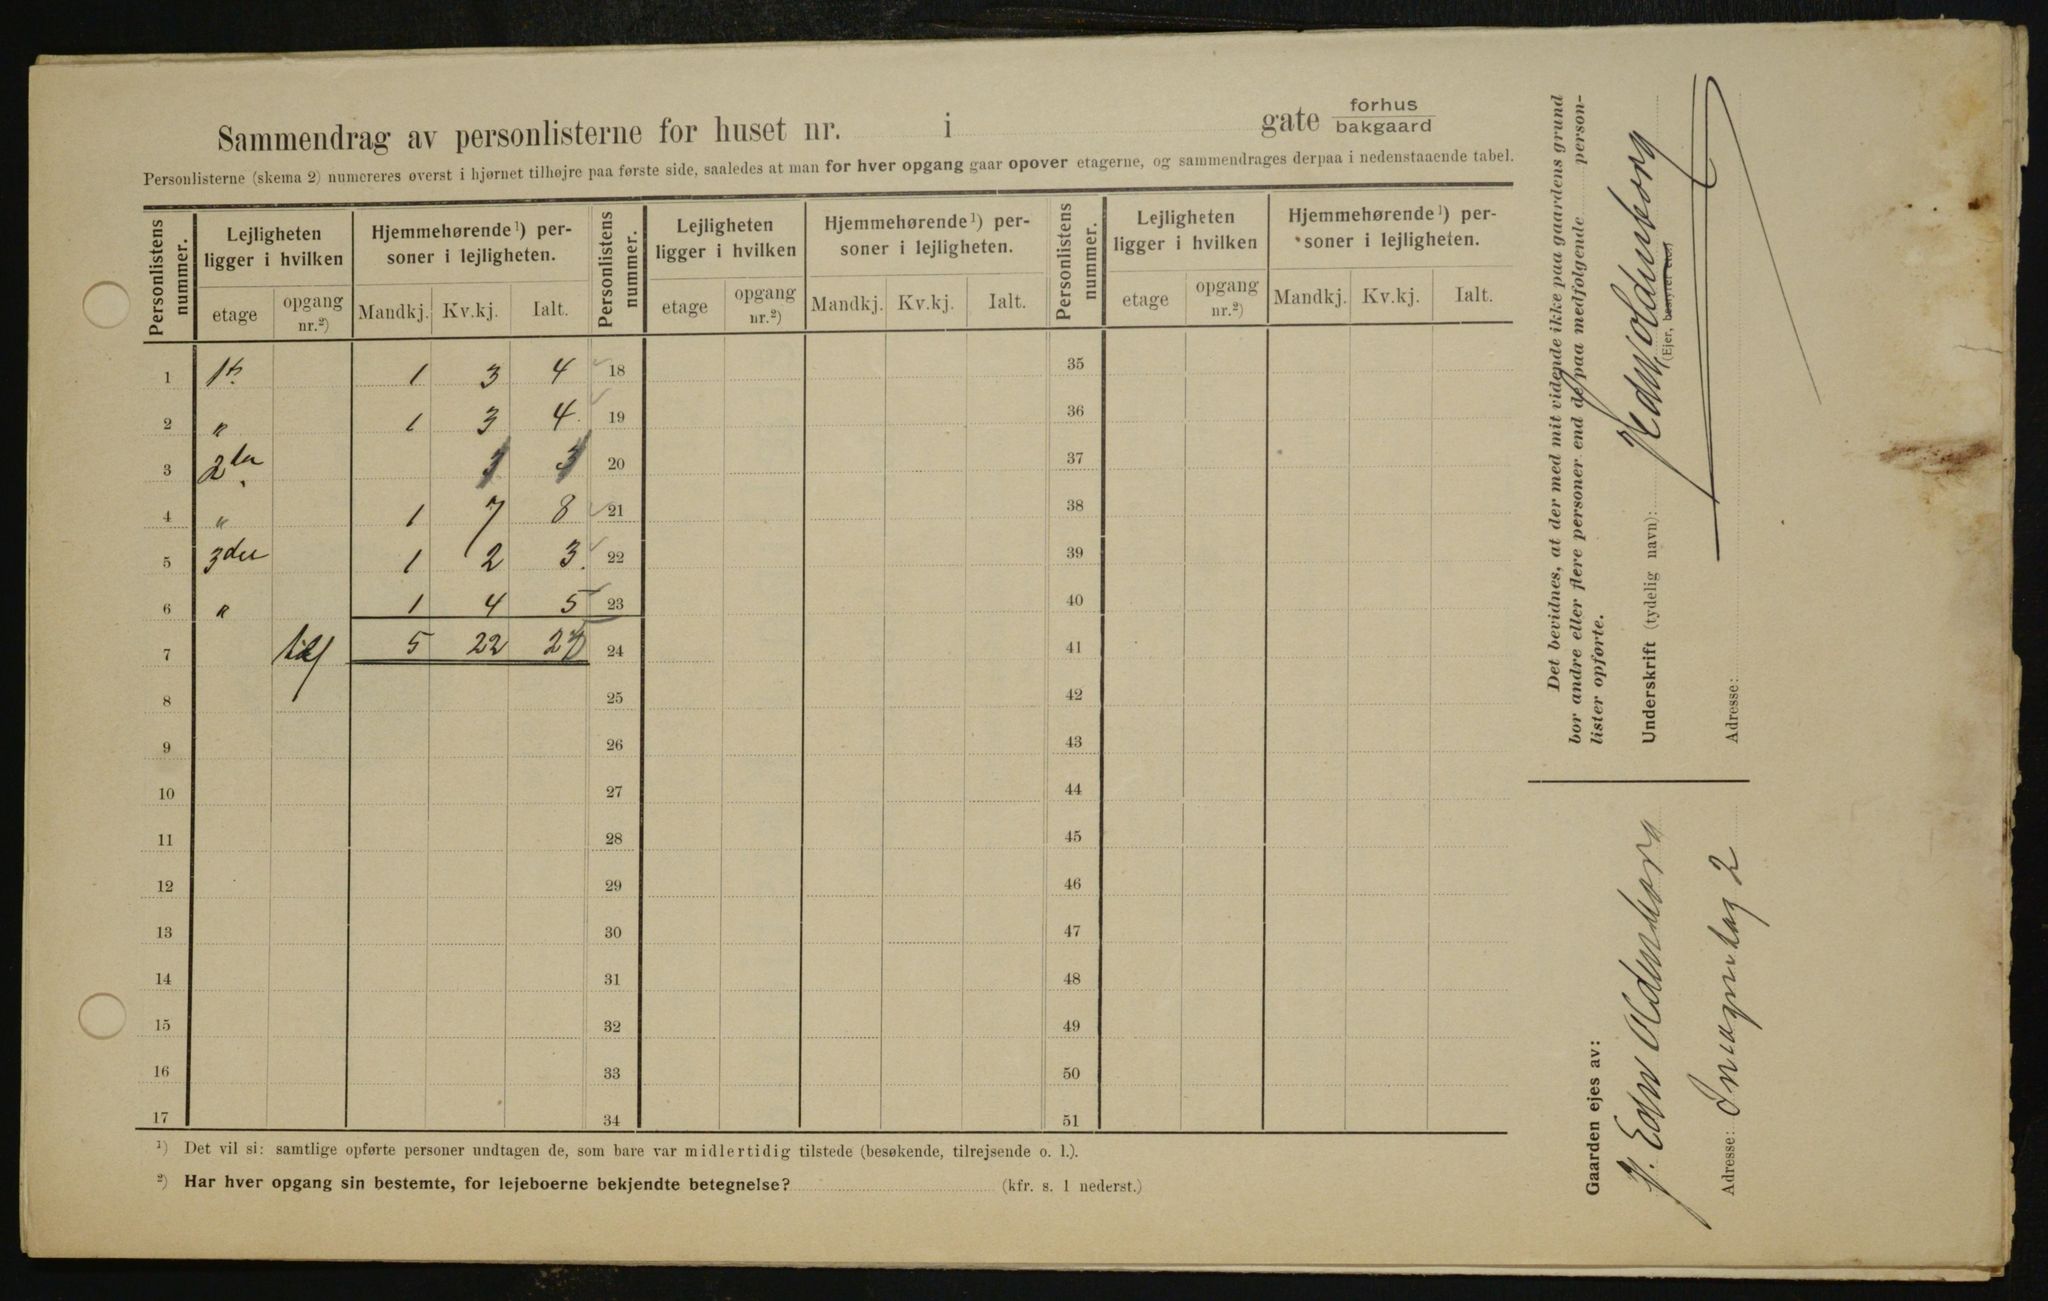 Sammendrag av personlisterne for huset nr. i gate forhus
bakgaard
Personlisterne (skema 2) numereres øverst i hjørnet tilhøjre paa første side, saaledes at man for hver opgang gaar opover etagerne, og sammendrages derpaa i nedenstaaende tabel.
Personlistens nummer. Lejligheten ligger i hvilken Hjemmehørende¹) personer i lejligheten. Personlistens nummer. Lejligheten ligger i hvilken Hjemmehørende¹) personer i lejligheten. Personlistens nummer. Lejligheten ligger i hvilken Hjemmehørende¹) personer i lejligheten.
etage opgang nr.²) Mandkj. Kv.kj. Ialt. etage opgang nr.²) Mandkj. Kv.kj. Ialt. etage opgang nr.²) Mandkj. Kv.kj. Ialt.
1 1st 1 3 4 18 35
2 " 1 3 4 19 36
3 2den 3 3 20 37
4 " 1 7 8 21 38
5 3die 1 2 3 22 39
6 " 1 4 5 23 40
7 5 22 27 24 41
8 25 42
9 26 43
10 27 44
11 28 45
12 29 46
13 30 47
14 31 48
15 32 49
16 33 50
17 34 51
¹) Det vil si: samtlige opførte personer undtagen de, som bare var midlertidig tilstede (besøkende, tilrejsende o. l.).
²) Har hver opgang sin bestemte, for lejeboerne bekjendte betegnelse? (kfr. s. 1 nederst.)
Det bevidnes, at der med mit vidende ikke paa gaardens grund
bor andre eller flere personer end de paa medfølgende person-
lister opførte.
Underskrift (tydelig navn): Edw Oldenborg
(Ejer, bestyrer etc.)
Adresse:
Gaarden ejes av:
Edw Oldenborg
Adresse: 2